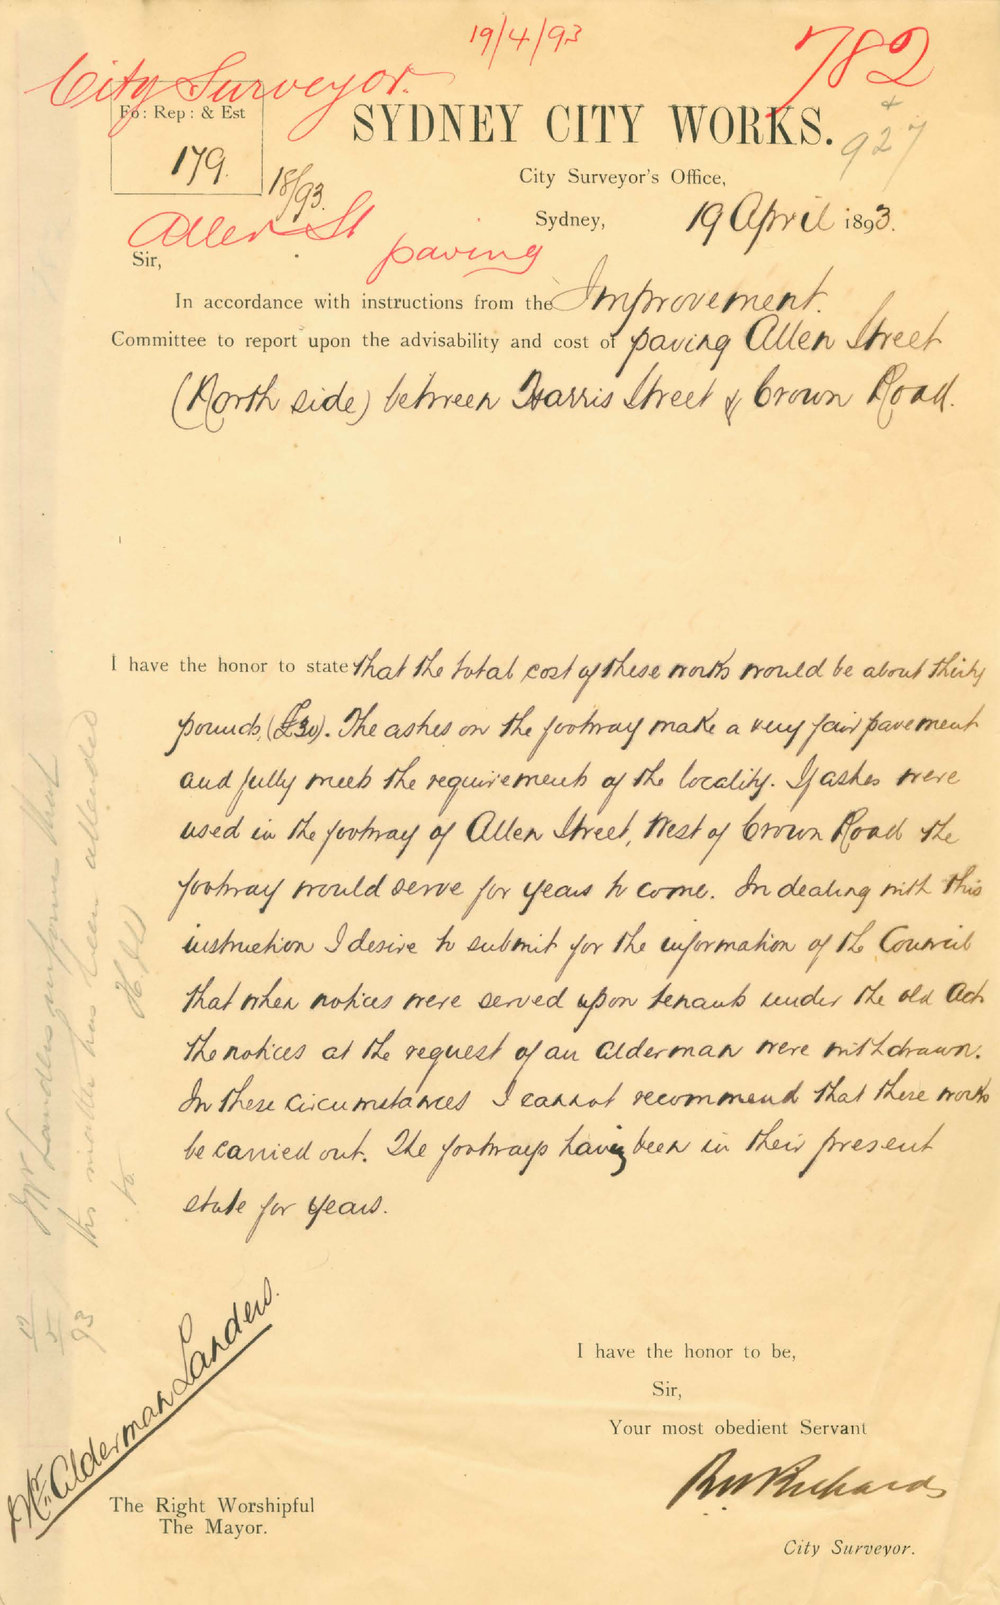 19/4/93
782
City Surveyor.
Fo: Rep: & Est
179.
18/93.
SYDNEY CITY WORKS.
+
927
City Surveyor's Office,
Sydney, 19 April 1893.
Allen St
paving
Sir,
In accordance with instructions from the Improvement.
Committee to report upon the advisability and cost of paving Allen Street
(North side) between Harris Street & Crown Road.
I have the honor to state that the total cost of these works would be about thirty
pounds, (£30). The ashes on the footway make a very fair pavement
and fully meets the requirements of the locality. If ashes were
used in the footway of Allen Street, West of Crown Road the
footway would serve for years to come. In dealing with this
instruction I desire to submit for the information of the Council
that when notices were served upon tenants under the old Act
the notices at the request of an Alderman were withdrawn.
In these circumstances I cannot recommend that these works
be carried out. The footways having been in their present
state for years.
Mr Landers informed that
this matter has been attended
to
93
Mr. Alderman Landers.
I have the honor to be,
Sir,
Your most obedient Servant
RW Richards
City Surveyor.
The Right Worshipful
The Mayor.